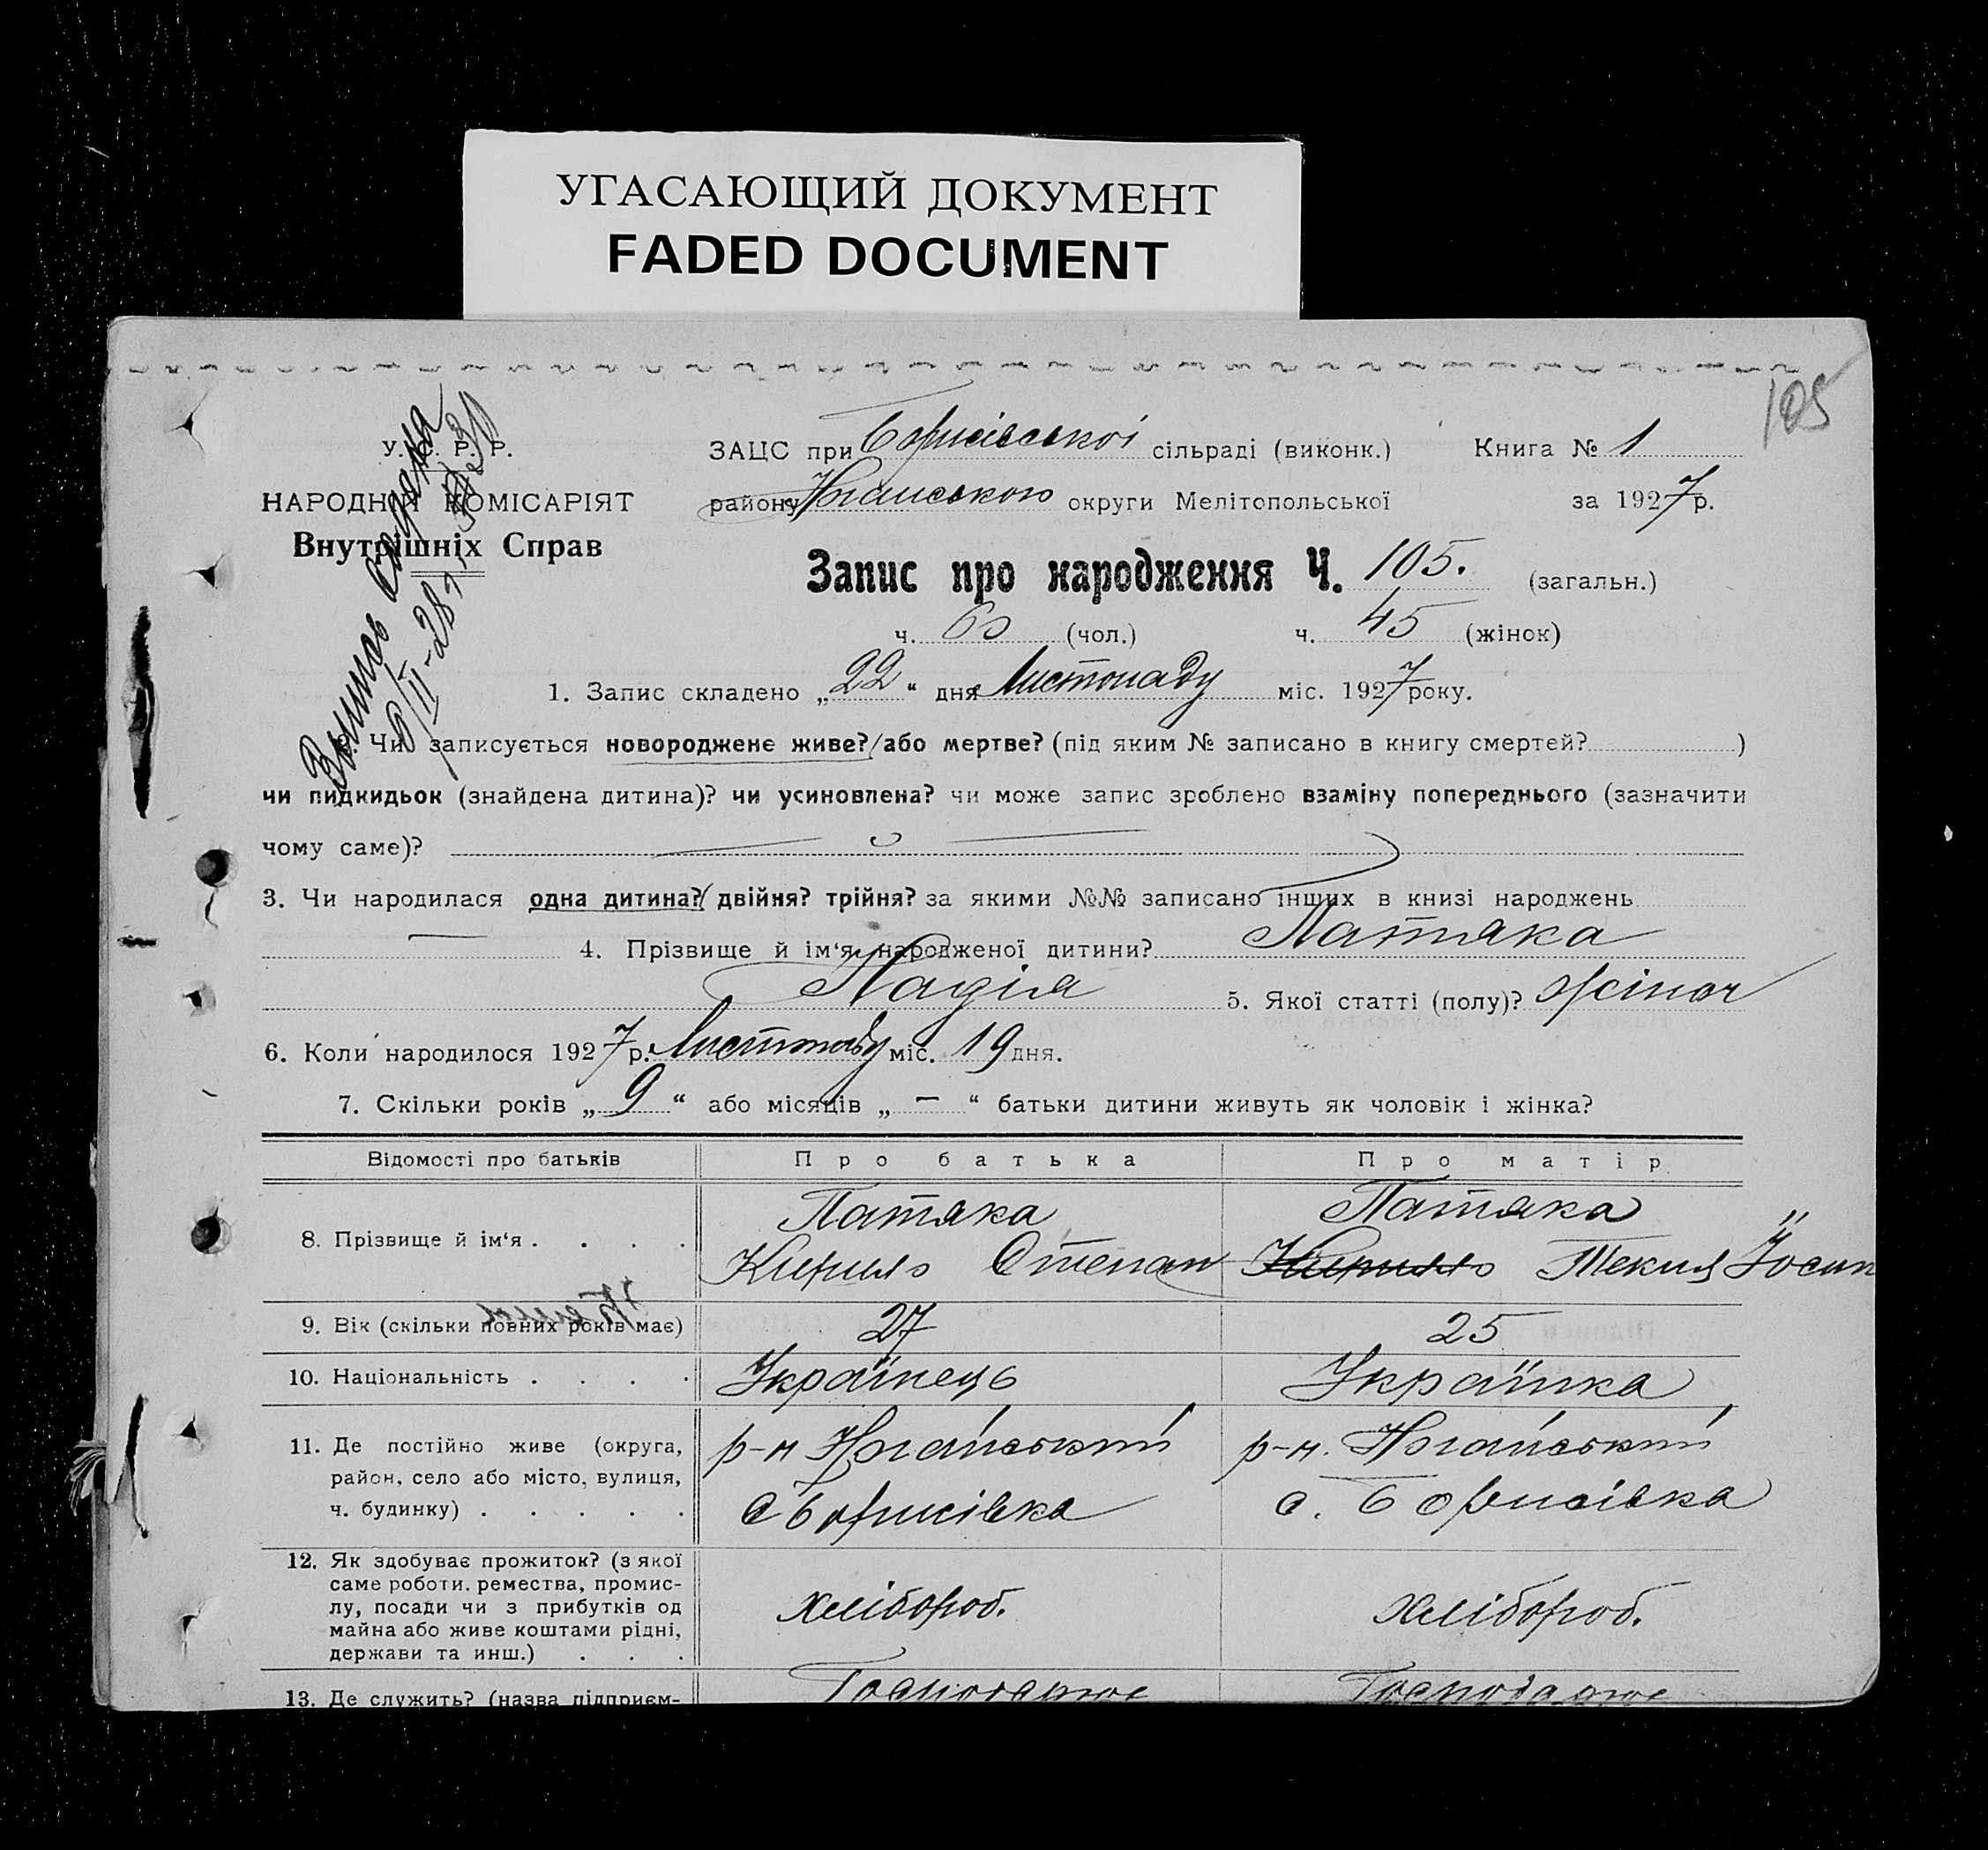 УГАСАЮЩИЙ ДОКУМЕНТ
FADED DOCUMENT
105
У. С. Р. Р.
НАРОДНІЙ КОМІСАРІЯТ
Внутрішніх Справ
ЗАЦС при Борисівської сільраді (виконк.) Книга № 1
району Ногайського округи Мелітопольської за 1927 р.
Запис про народження Ч. 105. (загальн.)
ч. 60 (чол.) ч. 45 (жінок)
1. Запис складено „22“ дня Листопаду міс. 1927 року.
2. Чи записується новороджене живе? або мертве? (під яким № записано в книгу смертей? )
чи пидкидьок (знайдена дитина)? чи усиновлена? чи може запис зроблено взаміну попереднього (зазначити
чому саме)?
3. Чи народилася одна дитина? двійня? трійня? за якими №№ записано інших в книзі народжень
— 4. Прізвище й ім‘я народженої дитини? Патяка
Надія 5. Якої статті (полу)? жіноч
6. Коли народилося 1927 р. Листопаду міс. 19 дня.
7. Скільки років „9“ або місяців „—“ батьки дитини живуть як чоловік і жінка?
Відомості про батьків Про батька Про матір
8. Прізвище й ім‘я . . . . Патяка Патяка
Кирило Степан Кирило Текля Йосип
9. Вік (скільки повних років має) 27 25
10. Національність . . . . Українець Українка
11. Де постійно живе (округа, р-н Ногайський р-н. Ногайський
район, село або місто, вулиця,
ч. будинку) . . . . . с Борисівка с. Борисівка
12. Як здобуває прожиток? (з якої
саме роботи. ремества, промис-
лу, посади чи з прибутків од хлібороб. хлібороб.
майна або живе коштами рідні,
держави та инш.) . . .
13. Де служить? (назва підприєм-